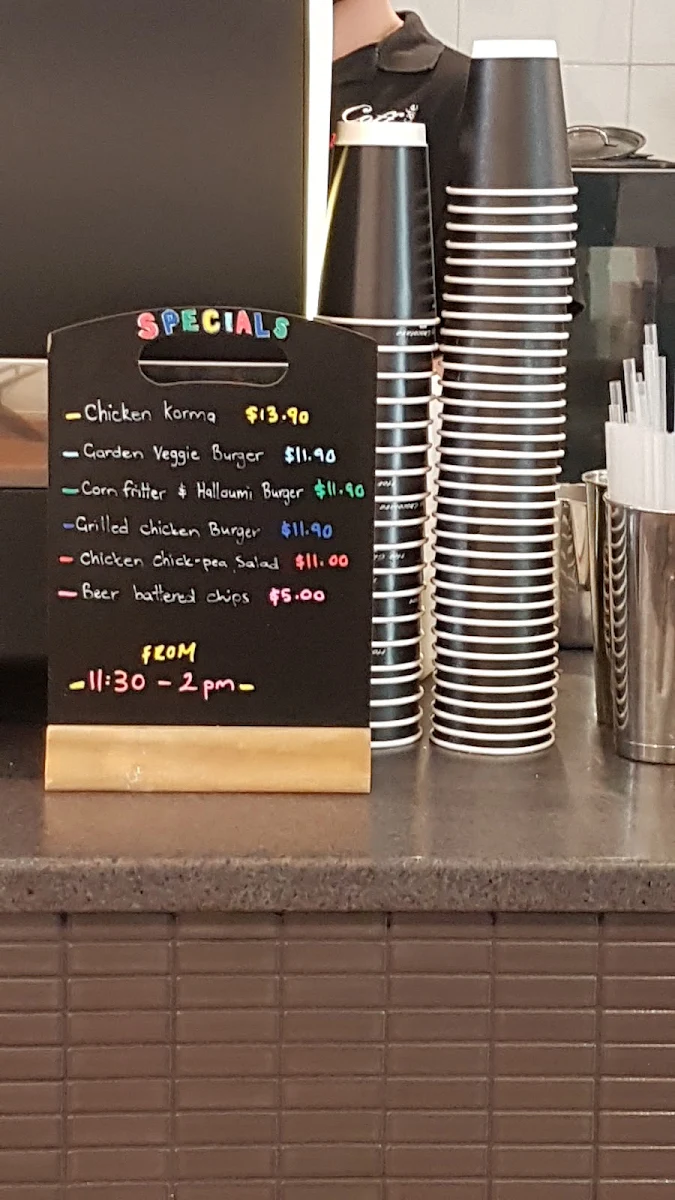 SPECIALS
- Chicken Korma $13.90
- Garden Veggie Burger $11.90
- Corn fritter & Halloumi Burger $11.90
- Grilled chicken Burger $11.90
- Chicken chick-pea Salad $11.00
- Beer battered chips $5.00
FROM
- 11:30 - 2pm -